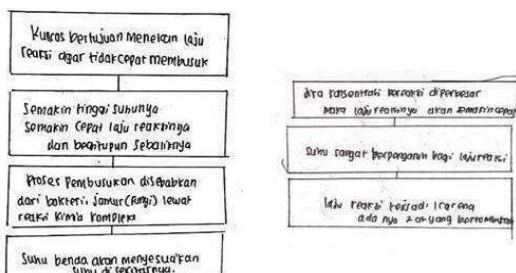 Kulkas bertujuan menekan laju
reaksi agar tidak cepat membusuk
Semakin tinggi suhunya
Semakin cepat laju reaksinya
dan begitupun sebaliknya
Proses Pembusukan disebabkan
dari bakteri, jamur (fungi) lewat
reaksi kimia kompleks
Suhu benda akan menyesuaikan
suhu di sekitarnya.
jika konsentrasi pereaksi diperbesar
maka laju reaksinya akan semakin cepat
Suhu sangat berpengaruh bagi laju reaksi
laju reaksi terjadi karena
ada nya 2 zat yang bertumbukan